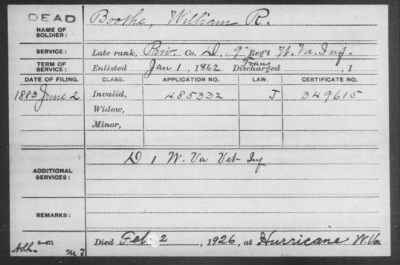 DEAD
NAME OF SOLDIER: Boothe, William R.
SERVICE: Late rank, Priv. Co. D, 9" Reg't W. Va. Inf.
TERM OF SERVICE: Enlisted Jan 1, 1862 Trans Discharged , 1
DATE OF FILING. CLASS. APPLICATION NO. LAW. CERTIFICATE NO.
1883 June 2 Invalid, 485332 J 349615
Widow,
Minor,
ADDITIONAL SERVICES: D 1 W. Va Vet Inf
REMARKS:
Died Feb 2, 1926, at Hurricane W. Va